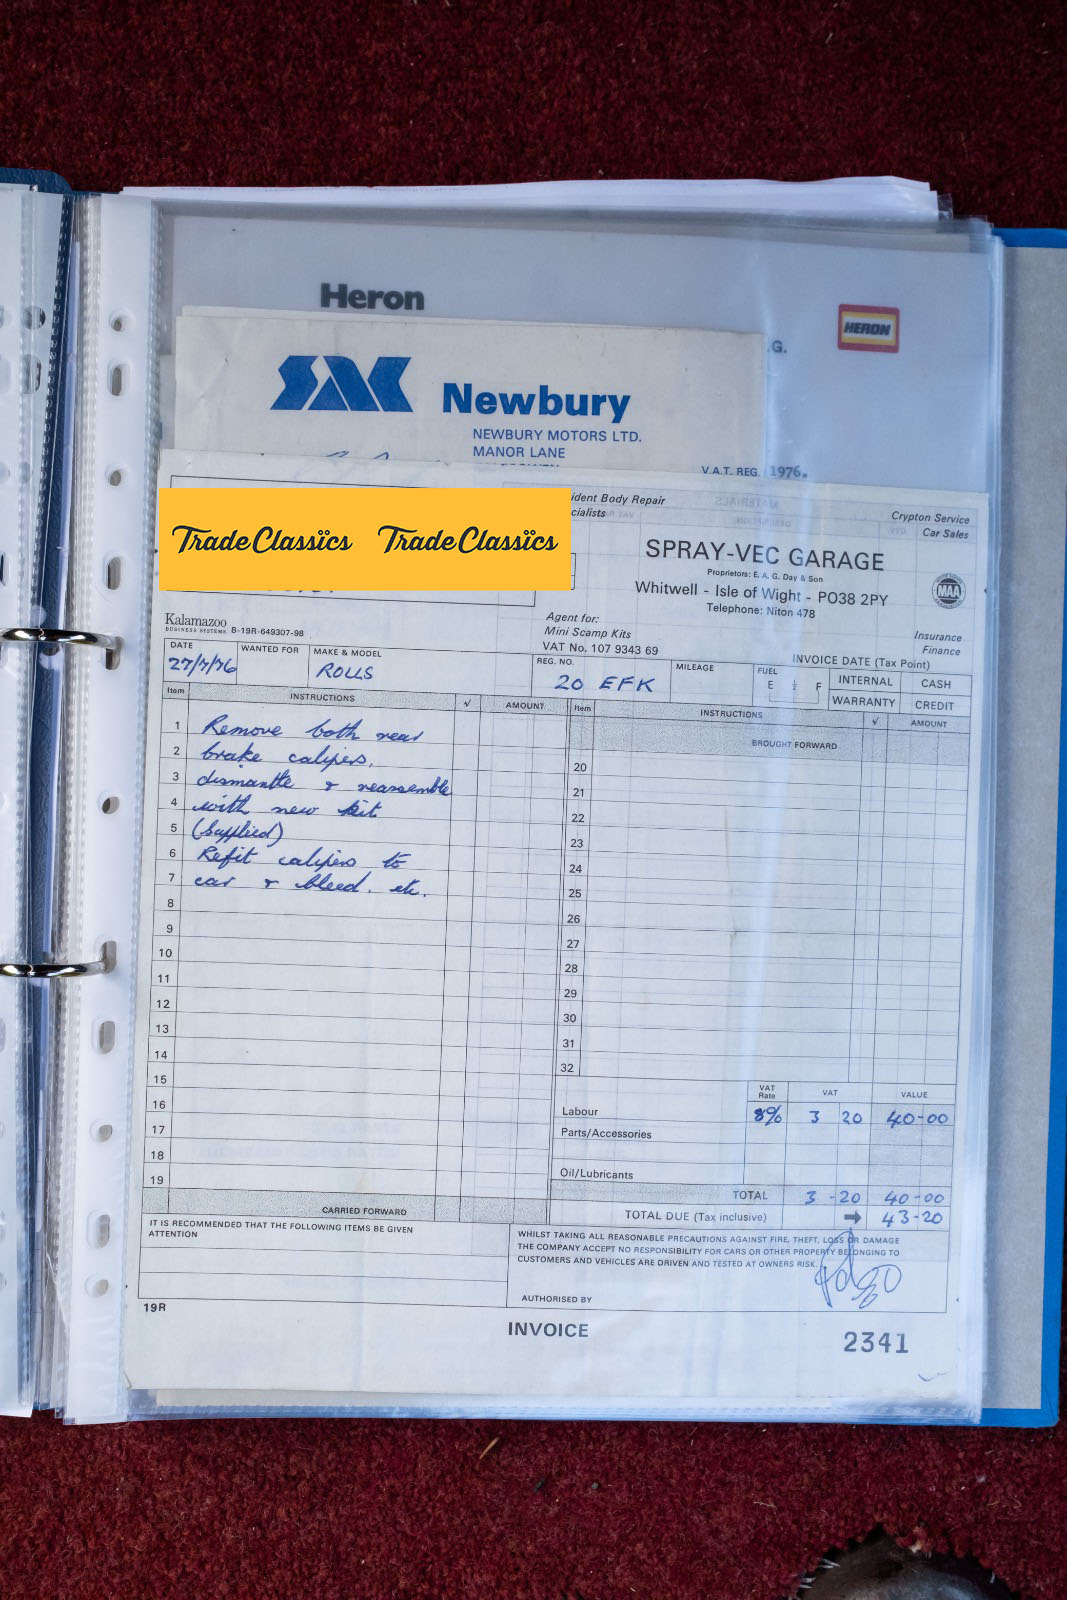 Heron
HERON
.G.
SMC Newbury
NEWBURY MOTORS LTD.
MANOR LANE
V.A.T. REG. 1976.
ident Body Repair
cialists
Crypton Service
Car Sales
TradeClassics TradeClassics
SPRAY-VEC GARAGE
Proprietors: E. A. G. Day & Son
Whitwell - Isle of Wight - PO38 2PY
Telephone: Niton 478
MAA
Kalamazoo
BUSINESS SYSTEMS B-19R-649307-98
Agent for:
Mini Scamp Kits
VAT No. 107 9343 69
Insurance
Finance
INVOICE DATE (Tax Point)
DATE WANTED FOR MAKE & MODEL REG. NO. MILEAGE FUEL INTERNAL CASH
27/7/76 ROLLS 20 EFK E ½ F WARRANTY CREDIT
Item INSTRUCTIONS √ AMOUNT Item INSTRUCTIONS √ AMOUNT
BROUGHT FORWARD
1 Remove both rear
2 brake calipers,
3 dismantle & reassemble
4 with new kit
5 (supplied)
6 Refit calipers to
7 car & bleed. etc.
8
9
10
11
12
13
14
15
16
17
18
19
CARRIED FORWARD
20
21
22
23
24
25
26
27
28
29
30
31
32
VAT Rate VAT VALUE
Labour 8% 3 20 40-00
Parts/Accessories
Oil/Lubricants
TOTAL 3-20 40-00
TOTAL DUE (Tax inclusive) → 43-20
IT IS RECOMMENDED THAT THE FOLLOWING ITEMS BE GIVEN
ATTENTION
WHILST TAKING ALL REASONABLE PRECAUTIONS AGAINST FIRE, THEFT, LOSS OR DAMAGE
THE COMPANY ACCEPT NO RESPONSIBILITY FOR CARS OR OTHER PROPERTY BELONGING TO
CUSTOMERS AND VEHICLES ARE DRIVEN AND TESTED AT OWNERS RISK.
AUTHORISED BY
19R
INVOICE
2341